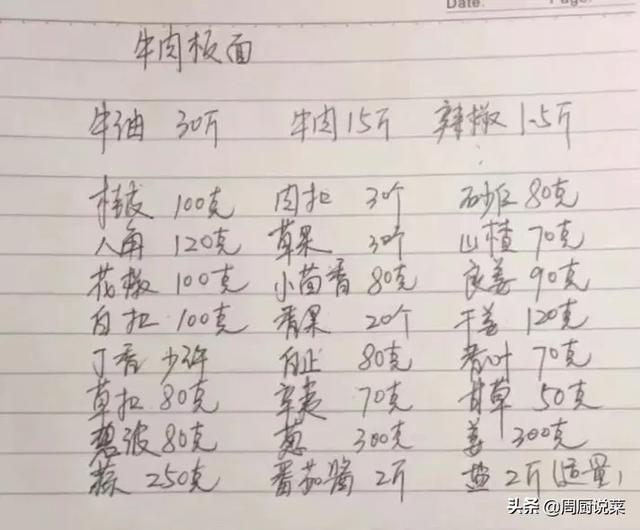 Date: Page:
牛肉板面
牛油 30斤 牛肉 15斤 辣椒 1.5斤
桂皮 100克 肉扣 3个 砂仁 80克
八角 120克 草果 30个 山楂 70克
花椒 100克 小茴香 80克 良姜 90克
白扣 100克 香果 20个 干姜 120克
丁香 少许 白止 80克 香叶 70克
草扣 80克 辛夷 70克 甘草 50克
荜波 80克 葱 300克 姜 300克
蒜 250克 番茄酱 2斤 盐 2斤(适量)
头条 @周厨说菜